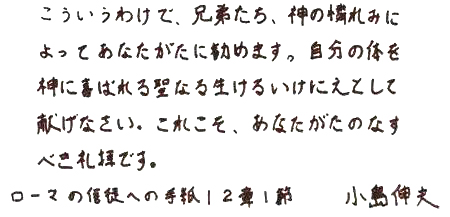 こういうわけで、兄弟たち、神の憐れみに
よってあなたがたに勧めます。自分の体を
神に喜ばれる聖なる生けるいけにえとして
献げなさい。これこそ、あなたがたのなす
べき礼拝です。
ローマの信徒への手紙12章1節 小島伸夫